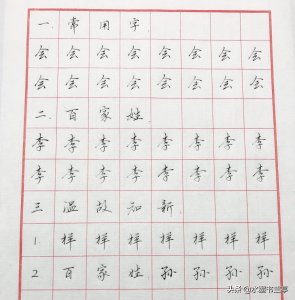 一.常用字
会会会会会会会会
会会会会会会会会
二.百家姓
李李李李李李李李
李李李李李李李李
三温故知新
1样样样样样样样
2百家姓孙孙孙孙
头条@水墨书兰亭